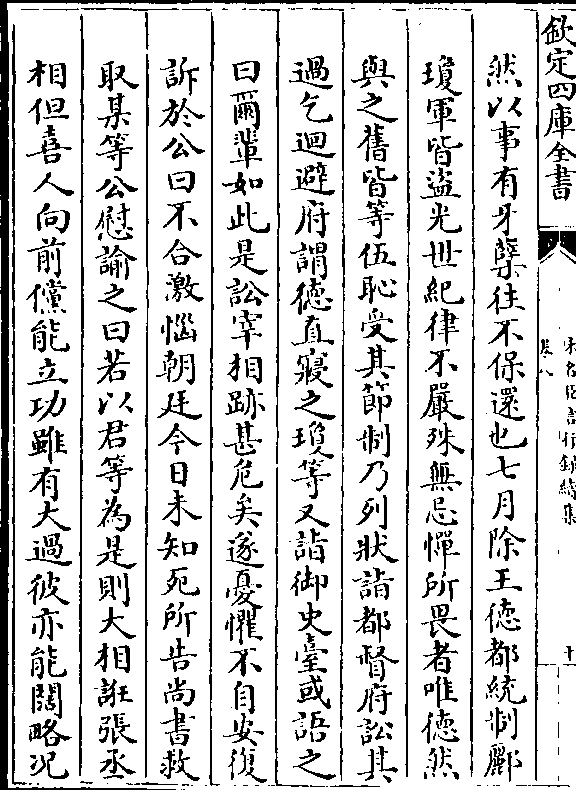 欽定四庫全書
宋名臣言行錄續集
卷八
十
然以事有牙孽往不保還也七月除王徳都統制酈
瓊軍皆盜光世紀律不嚴殊無忌憚所畏者唯徳然
與之舊皆等伍恥受其節制乃列狀詣都督府訟其
過乞迴避府謂徳直寢之瓊等又詣御史臺或語之
曰爾輩如此是訟宰相跡甚危矣遂憂懼不自安復
訴於公曰不合激惱朝廷今日未知死所告尚書救
取某等公慰諭之曰若以君等為是則大相誑張丞
相但喜人向前儻能立功雖有大過彼亦能闊略况